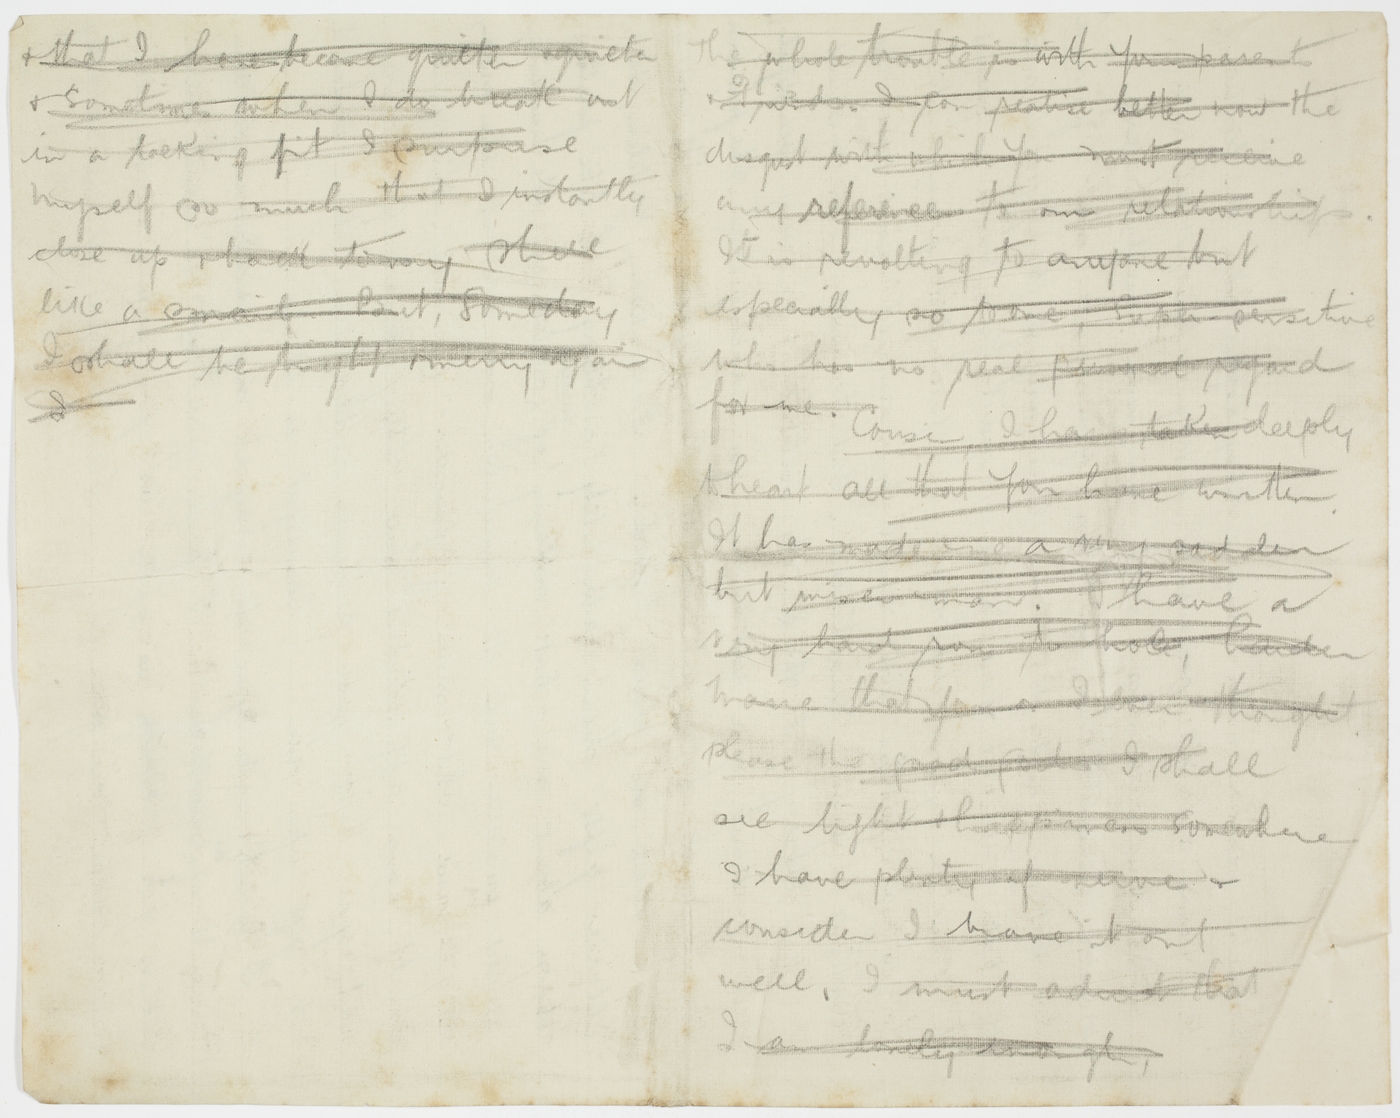 & that I have become quieter & quieter
& sometimes when I do break out
in a talking fit I surprise
myself so much that I instantly
close up & back to my shell
like a snail. But, someday
I shall be bright & merry again
I
The whole trouble is with your parent
& friends. I can realise better now the
disgust with which you must receive
any reference to our relationships.
It is revolting to anyone but
especially so to one, super sensitive
who has no real personal regard
for me.
Cousin, I have taken deeply
to heart all that you have written.
It has made me a very sadder
but wiser man. I have a
very hard row to hoe, harder
than you or I ever thought
please the good gods I shall
see light & happiness somewhere
I have plenty of nerve &
consider I have it out
well, I must admit that
I am lonely enough,